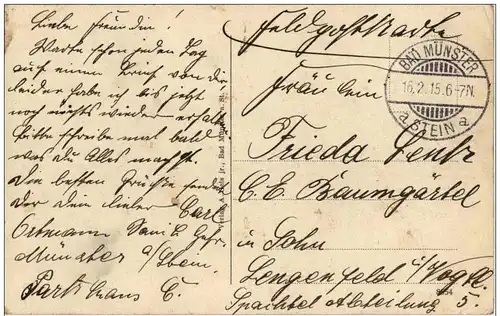 Liebe Freundin!
Warte schon jeden Tag
auf einen Brief von dir
leider habe ich bis jetzt
noch nichts wieder erhalten
bitte schreibe mal bald
was du Alles machst.
Die besten Grüße sendet
dir dein lieber Carl
Ortmann
Münster a/Stein.
Feldpostkarte
BAD MÜNSTER
16.2.15.6-7N.
a STEIN a
Fräulein
Frieda
C. E. Baumgärtel
in Sohn
Lengenfeld i/Vogtl.
5.